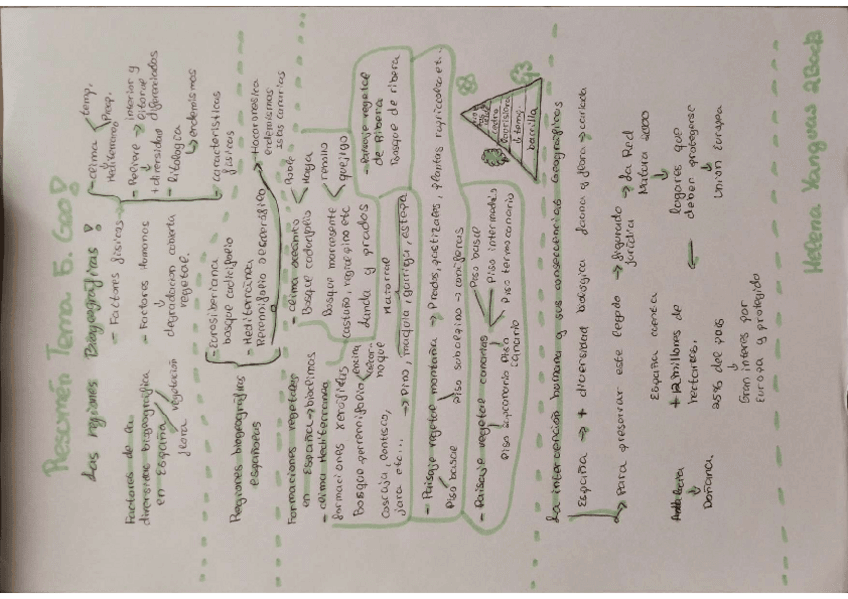 Resumen Tema 5. Geo
Las regiones Biogeográficas
Factores de la
diversidad biogeográfica
en España
flora
vegetación
- Factores físicos
- Factores humanos
degradación cubierta
vegetal.
- clima
Mediterraneo
temp,
Prep,
- Relieve → interior y
litoral
+ diversidad diferenciados
- Litológica
endemismos
- características
físicas
Regiones biogeográficas
españolas
- Eurosiberiana
bosque caducifolio
- Mediterránea
Perennifolio
- Macaronésica
endemismos
islas canarias
Formaciones vegetales
en España → bioclimas
- clima Mediterraneo
formaciones xerófilas
Bosque perennifolio
encina
alcor-
noque
Coscoja, Lentisco,
jara etc...
- clima oceánico
Bosque caducifolio
Roble
Haya
Bosque marcescente
rebollo
quejigo
castaño, negral pino etc
Landa y prados
Matorral
→ Pino, maquia, garriga, estepa
- Paisaje vegetal
de Ribera
Bosque de ribera
- Paisaje vegetal montaña → Prados, pastizales, plantas rupícolas etc..
Piso basal
Piso subalpino → coníferas
- Paisaje vegetal canarias
Piso basal
Piso intermedio
Piso termocanario
Piso
canario
barrilla
La intervención humana y sus consecuencias Geográficas
España → + diversidad biológica fauna y flora → variada
Para preservar este legado → figuras
jurídica
→ La Red
Natura 2000
España cuenta
+ 12 millones de
hectáreas,
lugares que
deben protegerse
Unión Europa
25% del país
Gran interés por
Europa y protegido
Doñana.
Helena Yanguas 2Bach